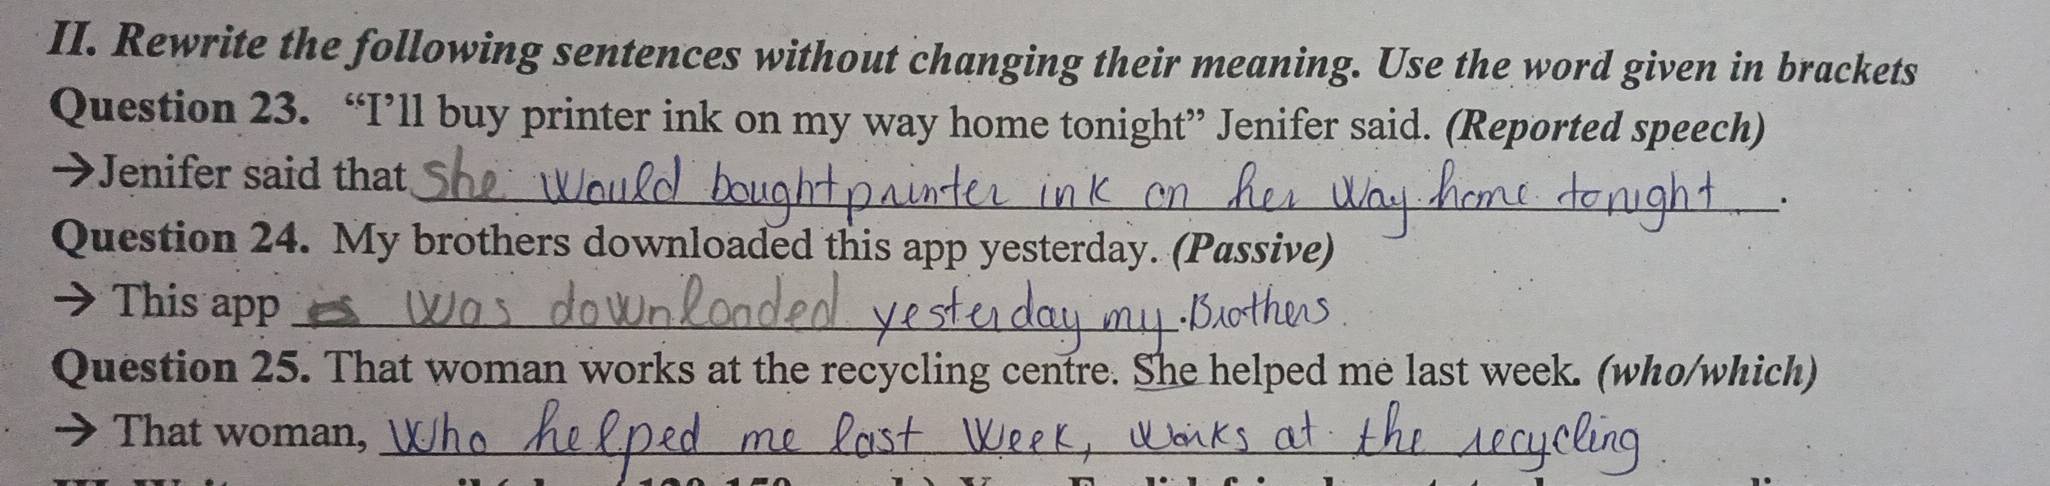 II. Rewrite the following sentences without changing their meaning. Use the word given in brackets
Question 23. “I’ll buy printer ink on my way home tonight” Jenifer said. (Reported speech)
→Jenifer said that she would bought printer ink on her way home tonight.
Question 24. My brothers downloaded this app yesterday. (Passive)
→ This app was downloaded yesterday my Brothers
Question 25. That woman works at the recycling centre. She helped me last week. (who/which)
→ That woman, who helped me last week, works at the recycling